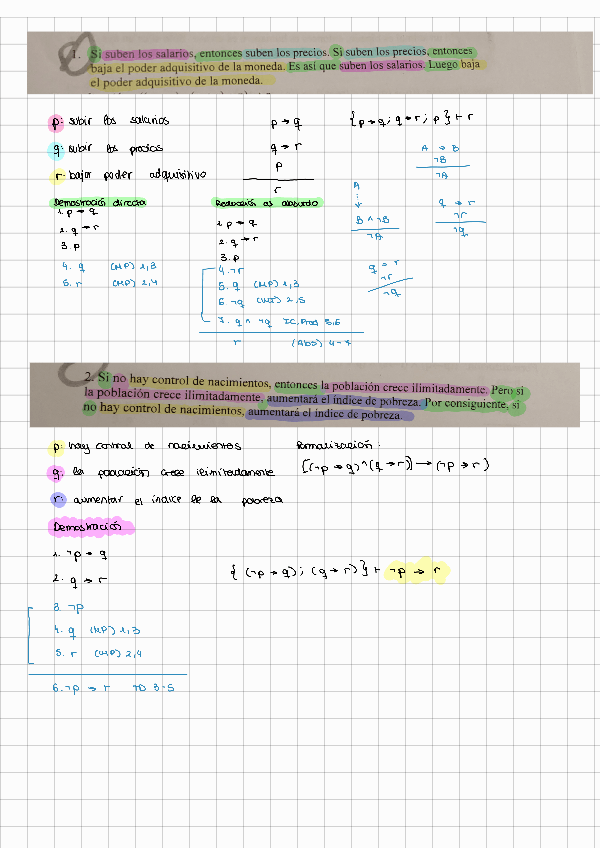 1. Si suben los salarios, entonces suben los precios. Si suben los precios, entonces
baja el poder adquisitivo de la moneda. Es así que suben los salarios. Luego baja
el poder adquisitivo de la moneda.
p: subir los salarios
p → q
{p → q; q → r; p} ⊢ r
q: subir los precios
q → r
r: bajar poder adquisitivo
p
r
A → B
¬B
¬A
A
B ∧ ¬B
¬A
q → r
¬r
¬q
q → r
¬r
¬q
Demostración directa
1. p → q
2. q → r
3. p
4. q (MP) 1,3
5. r (MP) 2,4
Reducción al absurdo
1. p → q
2. q → r
3. p
4. ¬r
5. q (MP) 1,3
6 ¬q (MT) 2,5
7. q ∧ ¬q IC, Prod 5,6
r (Abs) 4-7
2. Si no hay control de nacimientos, entonces la población crece ilimitadamente. Pero si
la población crece ilimitadamente, aumentará el índice de pobreza. Por consiguiente, si
no hay control de nacimientos, aumentará el índice de pobreza.
p: hay control de nacimientos
Formalización:
q: la población crece ilimitadamente
[(¬p → q) ∧ (q → r)] → (¬p → r)
r: aumentar el índice de la pobreza
Demostración
1. ¬p → q
2. q → r
{(¬p → q); (q → r)} ⊢ ¬p → r
3. ¬p
4. q (MP) 1,3
5. r (MP) 2,4
6. ¬p → r TD 3-5